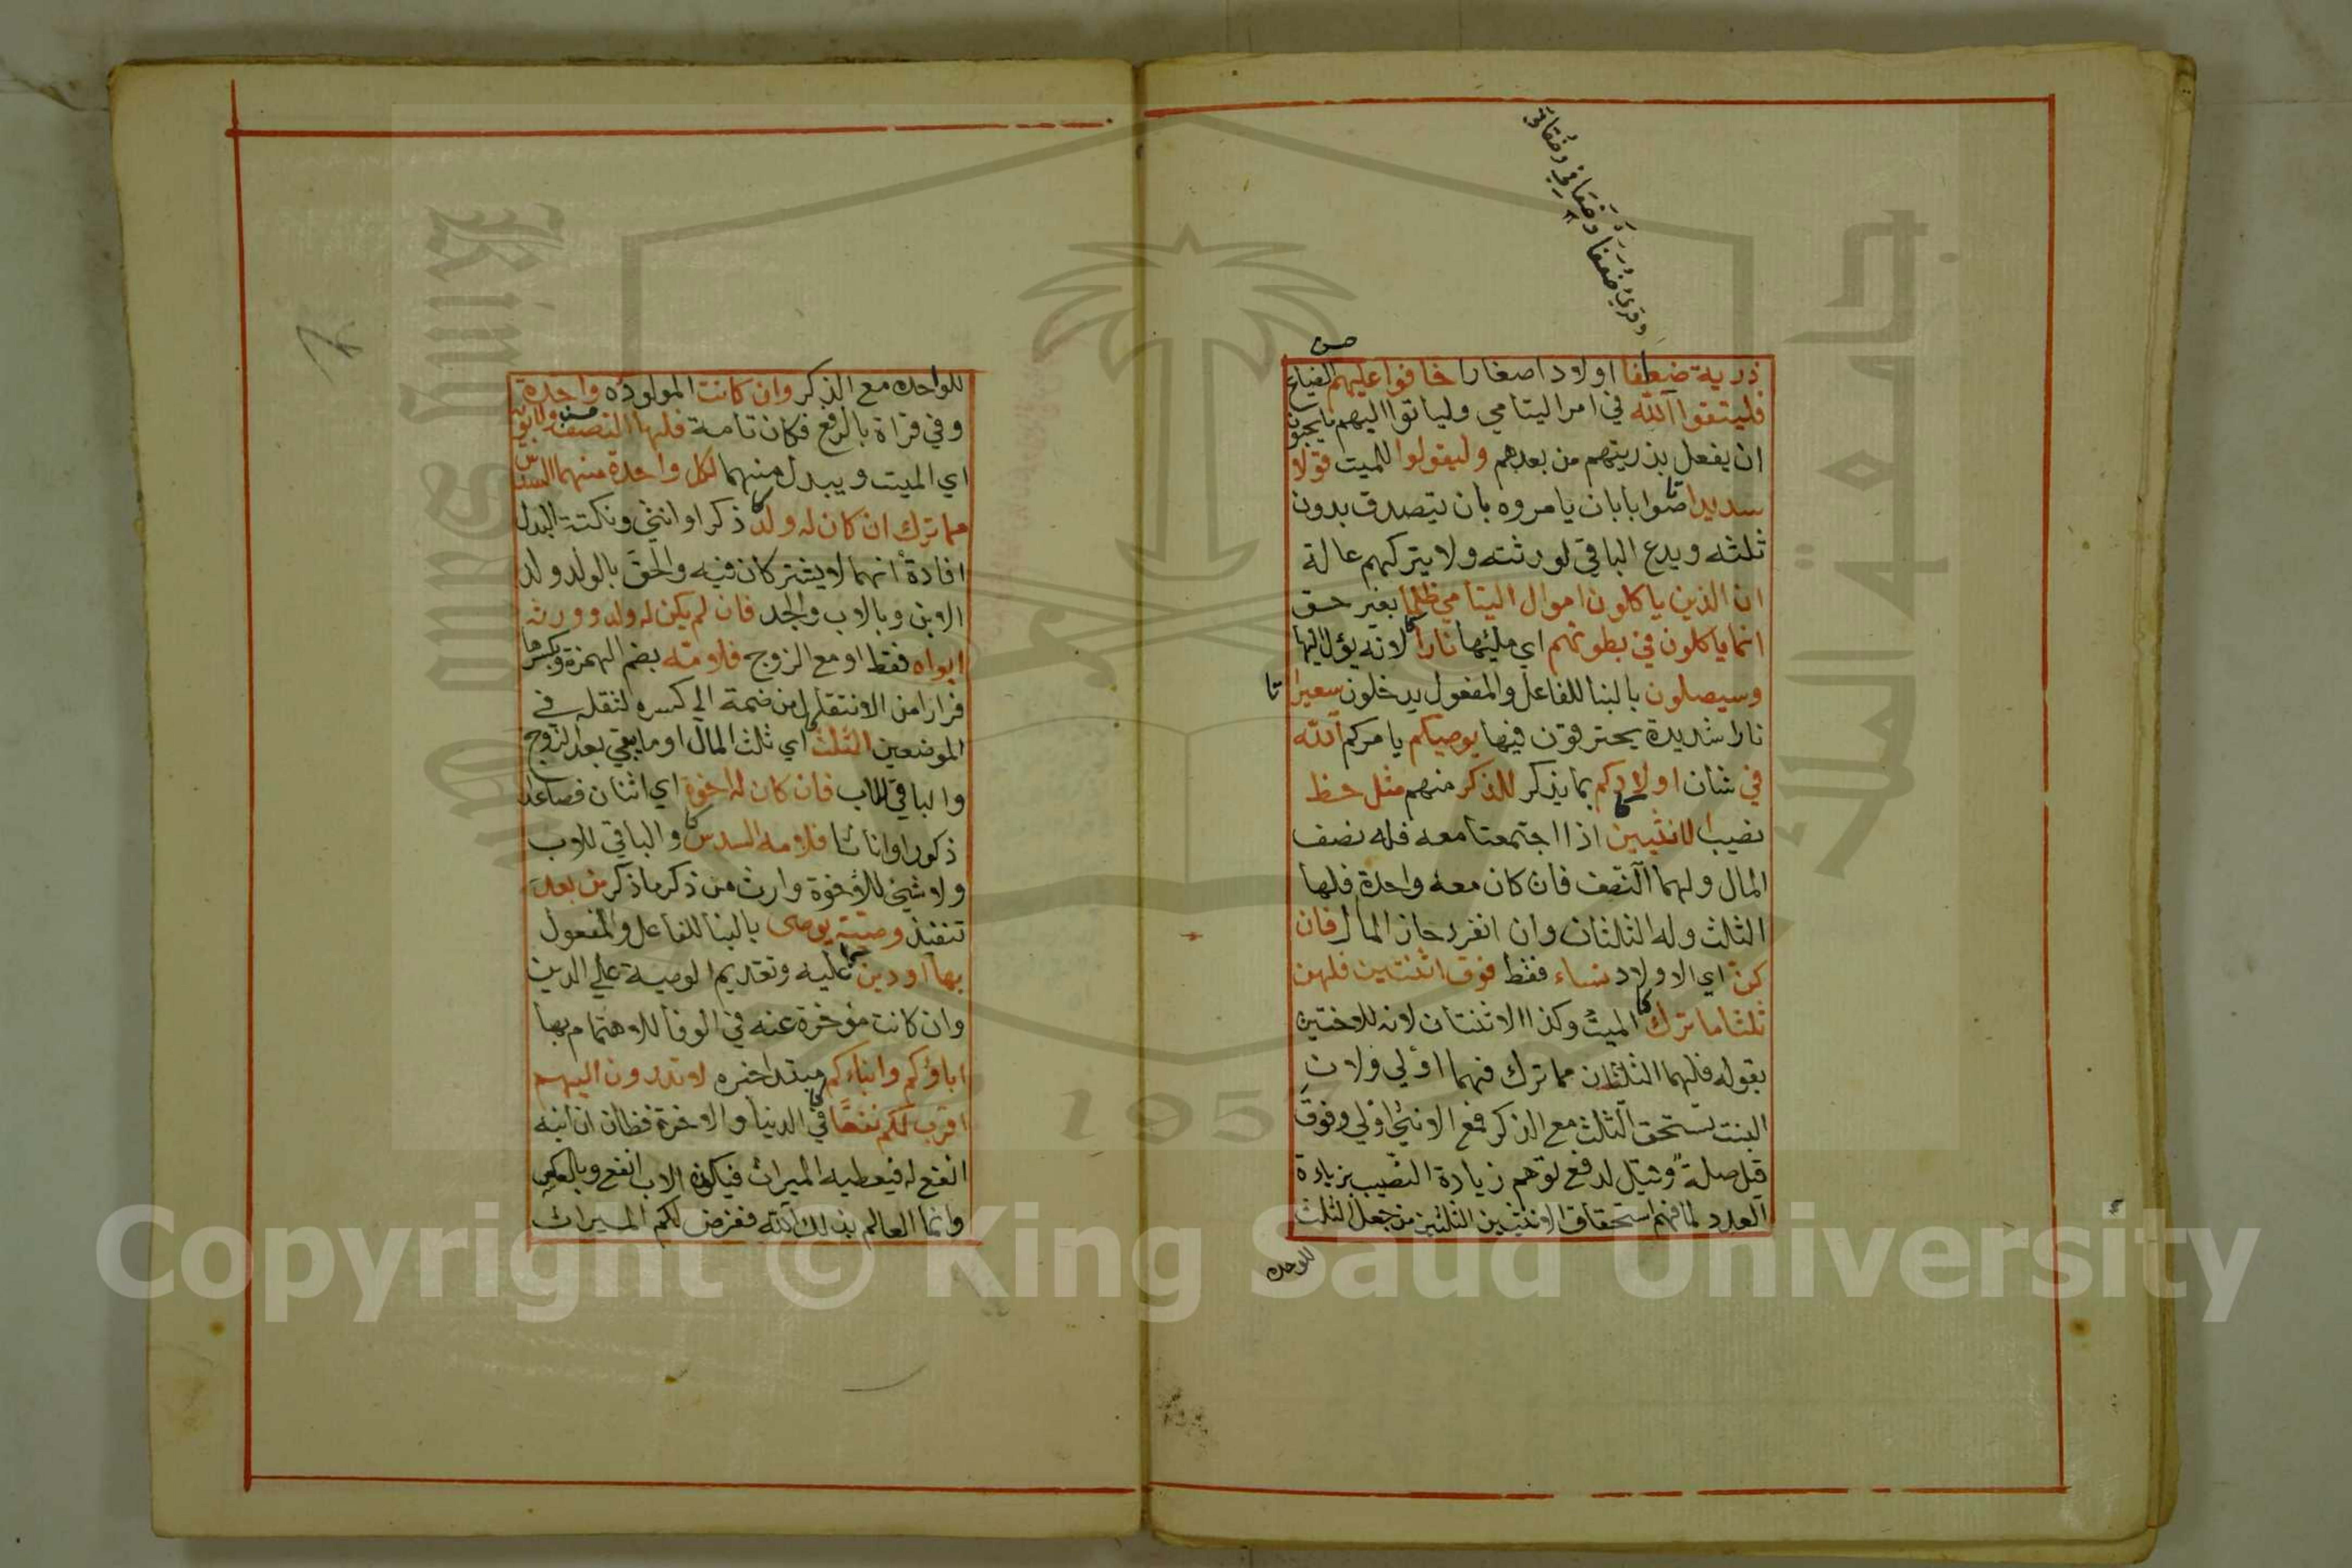 وقرئ ضعفا وضعافي وضعافى
ذرية ضعافا اولادا صغارا خافوا عليهم الضياع
فليتقوا الله في امر اليتامي ولياتوا اليهم ما يحبون
ان يفعل بذريتهم من بعدهم وليقولوا للميت قولا
سديدا صوابا بان يامروه بان يتصدق بدون
ثلثه ويدع الباقي لورثته ولا يتركهم عالة
ان الذين ياكلون اموال اليتامي ظلما بغير حق
انما ياكلون في بطونهم اي مليها نارا لانه يؤل اليها
وسيصلون بالبنا للفاعل والمفعول يدخلون سعيرا
نارا شديدة يحترقون فيها يوصيكم يامركم الله
في شان اولادكم بما يذكر للذكر منهم مثل حظ
نصيب الانثيين اذا اجتمعتا معه فله نصف
المال ولهما النصف فان كان معه واحدة فلها
الثلث وله الثلثان وان انفرد حاز المال فان
كن اي الاولاد نساء فقط فوق اثنتين فلهن
ثلثا ما ترك الميت وكذا الاثنتان لانه للاختين
بقوله فلهما الثلثان مما ترك فهما اولي ولان
البنت تستحق الثلث مع الذكر فمع الانثي اولي وفوق
قيل صلة وقيل لدفع توهم زيادة النصيب بزيادة
العدد لما فهم استحقاق الانثيين الثلثين من جعل الثلث
للواحده
للواحده مع الذكر وان كانت المولوده واحدة
وفي قراة بالرفع فكان تامة فلها النصف ولابويه
اي الميت ويبدل منهما لكل واحدة منهما السدس
مما ترك ان كان له ولد ذكرا او انثي ونكتة البدل
افادة انهما لا يشتركان فيه والحق بالولد ولد
الابن وبالاب والجد فان لم يكن له ولد وورثه
ابواه فقط او مع الزوج فلامه بضم الهمزة وبكسرها
فرارا من الانتقال من ضمة الي كسره لثقله في
الموضعين الثلث اي ثلث المال او ما بقي بعد الزوج
والباقي للاب فان كان له اخوة اي اثنان فصاعدا
ذكورا او اناثا فلامه السدس والباقي للاب
ولا شيئ للاخوة وارث من ذكر ما ذكر من بعد
تنفيذ وصية يوصى بالبنا للفاعل والمفعول
بها او دين عليه وتقديم الوصية علي الدين
وان كانت مؤخرة عنه في الوفا للاهتمام بها
اباؤكم وابناءكم مبتدا خبره لا تدرون ايهم
اقرب لكم نفعا في الدنيا والاخرة فظان ان ابنه
انفع له فيعطيه الميراث فيكون الاب انفع وبالعكس
وانما العالم بذلك الله ففرض لكم الميراث
Copyright © King Saud University
1957